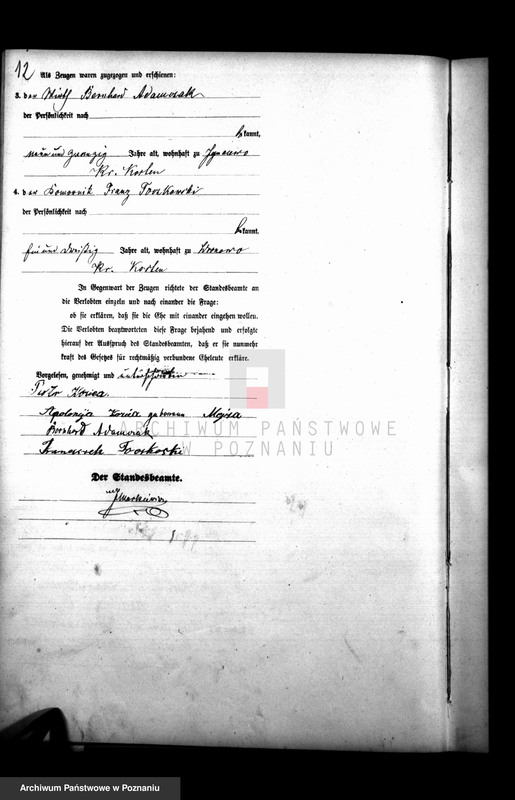 12
Als Zeugen waren zugezogen und erschienen:
3. der Wirth Bernhard Adamczak
der Persönlichkeit nach
bekannt,
Jahre alt, wohnhaft zu
Kr.
4. der Komornik Franz
der Persönlichkeit nach
bekannt,
dreißig Jahre alt, wohnhaft zu
Kr.
In Gegenwart der Zeugen richtete der Standesbeamte an
die Verlobten einzeln und nach einander die Frage:
ob sie erklären, daß sie die Ehe mit einander eingehen wollen.
Die Verlobten beantworteten diese Frage bejahend und erfolgte
hierauf der Ausspruch des Standesbeamten, daß er sie nunmehr
kraft des Gesetzes für rechtmäßig verbundene Eheleute erkläre.
Vorgelesen, genehmigt und unterschrieben
Piotr
Apolonija geborene
Bernhard Adamczak
Der Standesbeamte.
ARCHIWUM PAŃSTWOWE
W POZNANIU
Archiwum Państwowe w Poznaniu